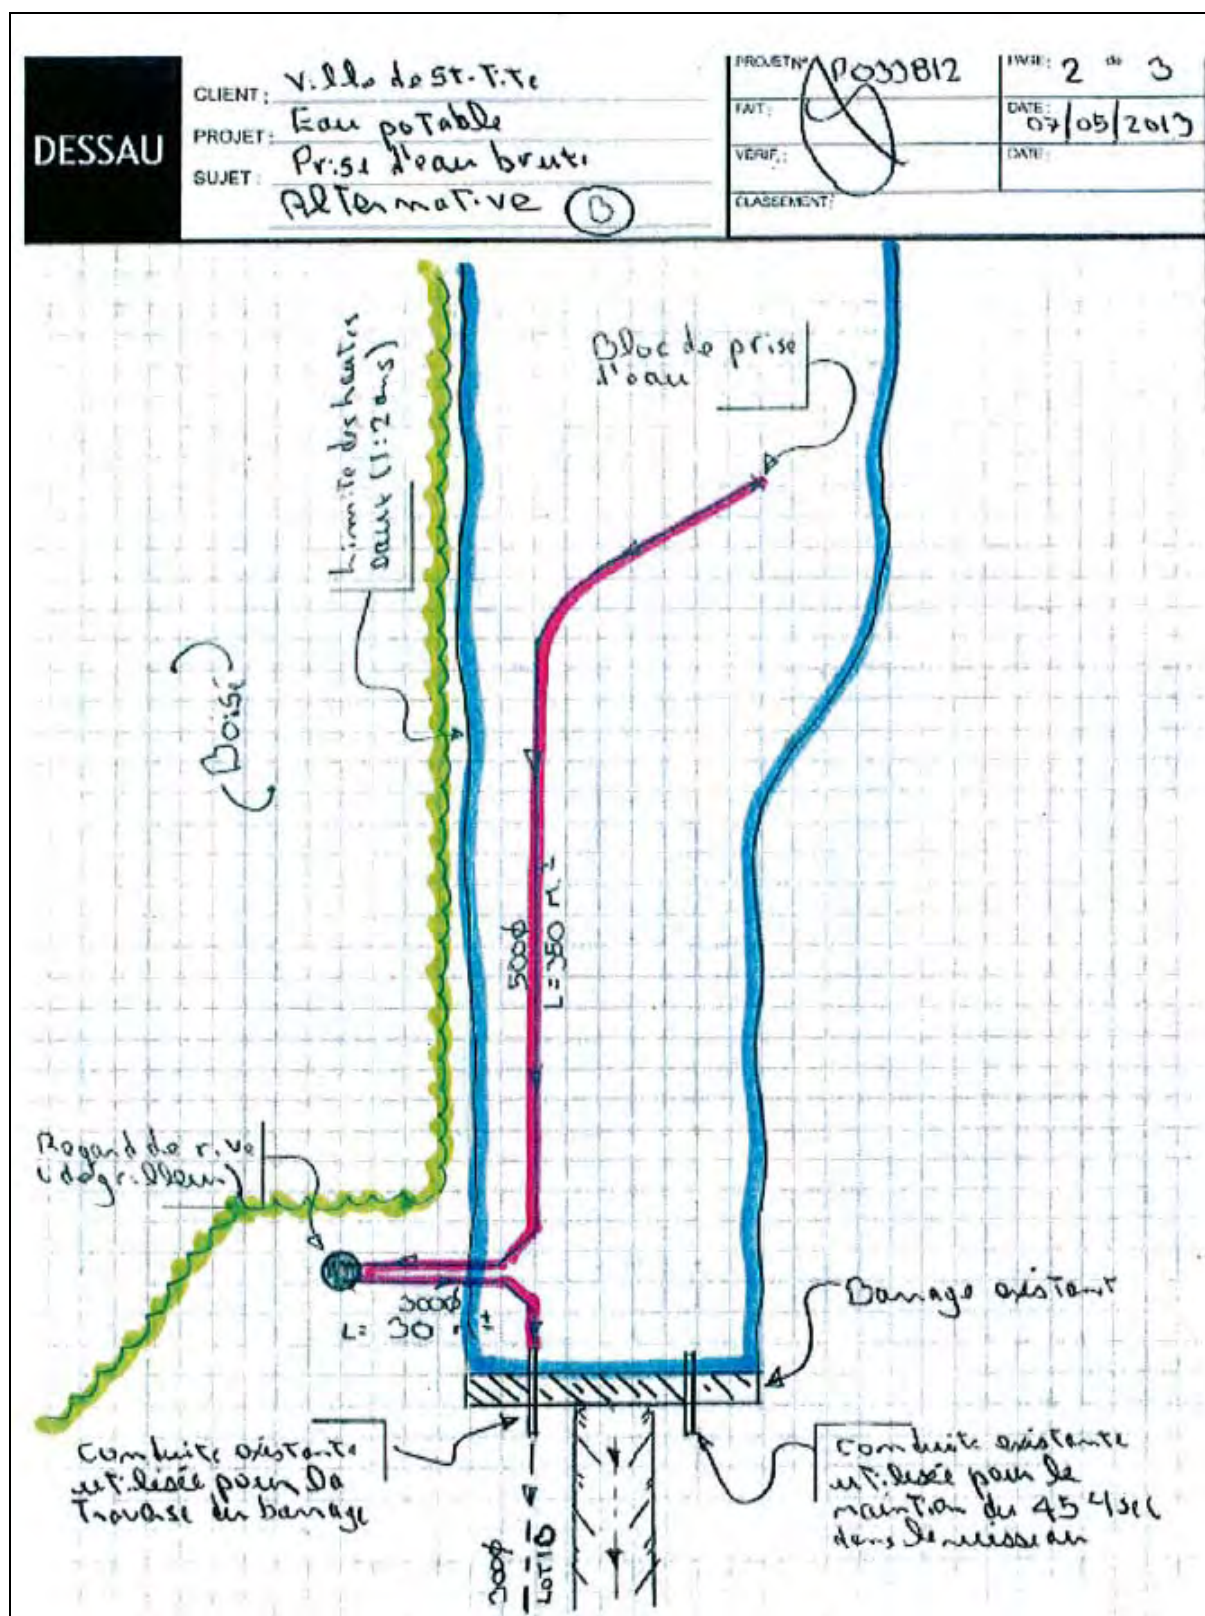 DESSAU
CLIENT: Ville de St-Tite
PROJET: Eau potable
SUJET: Prise d'eau brute
Alternative B
PROJET N° P033812
PAGE: 2 de 3
FAIT:
DATE: 07/05/2013
VÉRIF.:
DATE:
CLASSEMENT:
Bloc de prise
d'eau
Limite des hautes
eaux (1:2 ans)
Boisé
500ϕ
L=350 m.±
Regard de rive
(dégrilleur)
300ϕ
L= 30 m±
Barrage existant
Conduite existante
utilisée pour la
traverse du barrage
300ϕ
LOT 1B
Conduite existante
utilisée pour le
maintien du 45 l/sec
dans le ruisseau